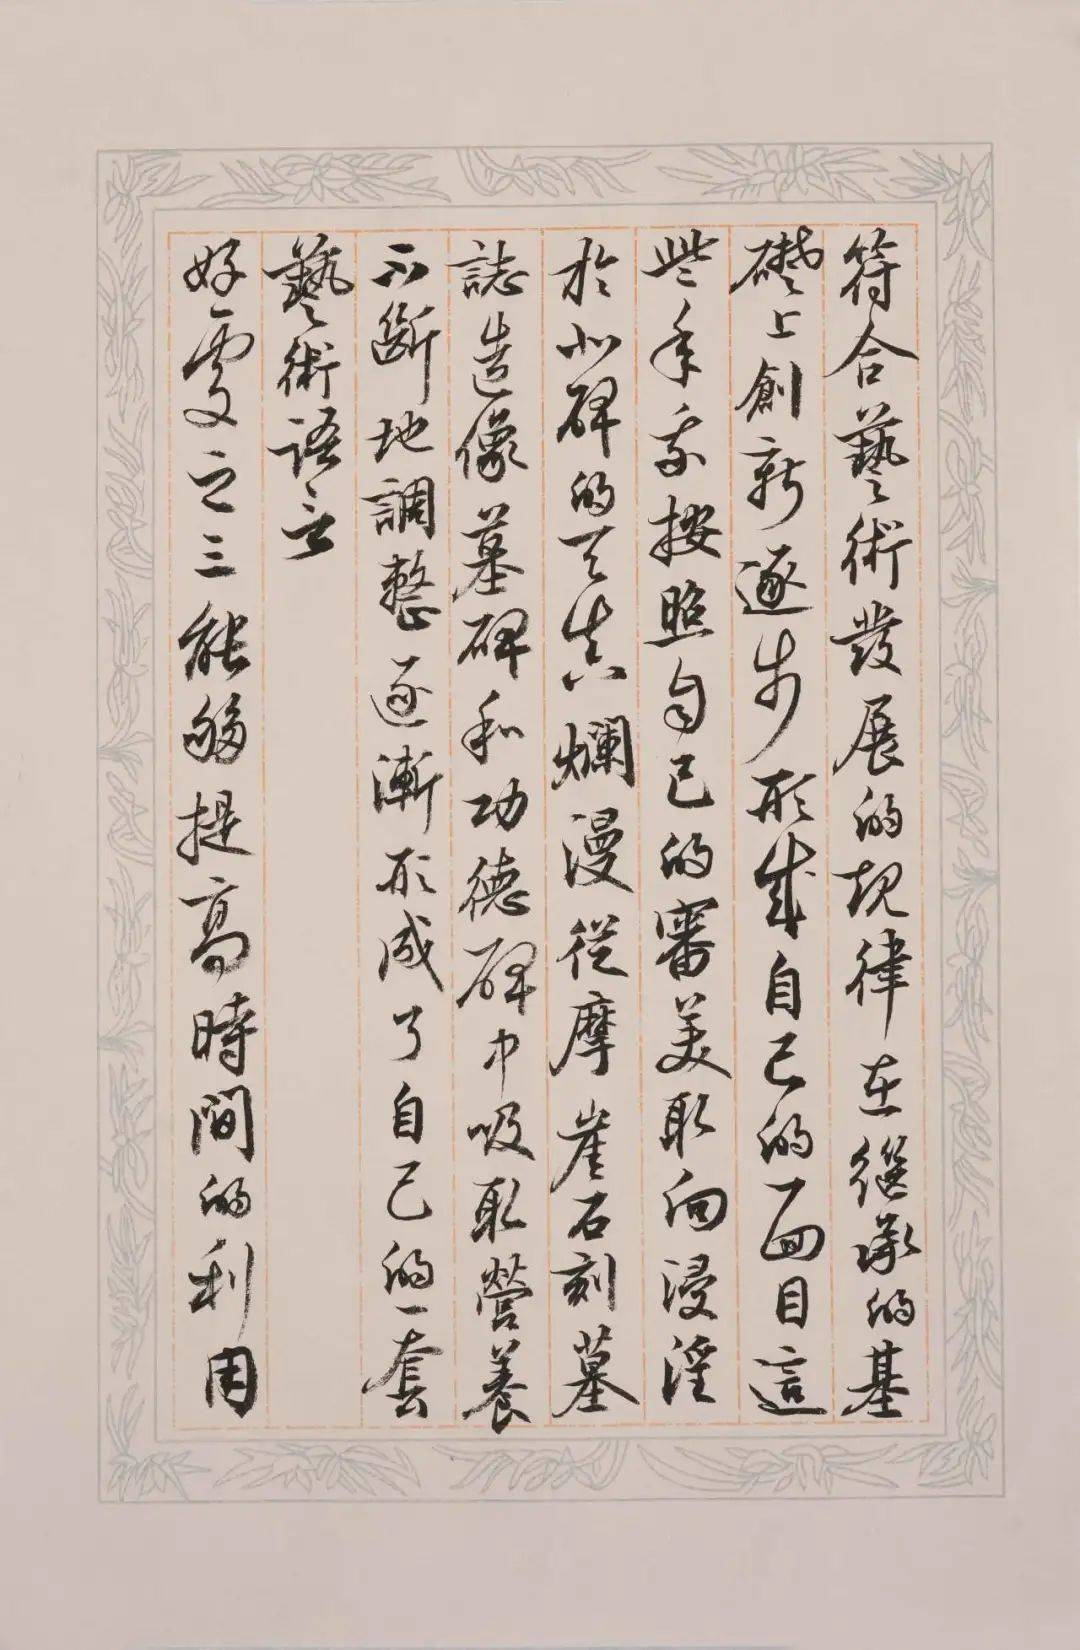 符合藝術發展的規律在繼承的基
礎上創新逐步形成自己的面目這
些年來按照自己的審美取向浸淫
於北碑的天真爛漫從摩崖石刻墓
誌造像墓碑和功德碑中吸取營養
不斷地調整逐漸形成了自己的一套
藝術語言
好處之三能夠提高時間的利用